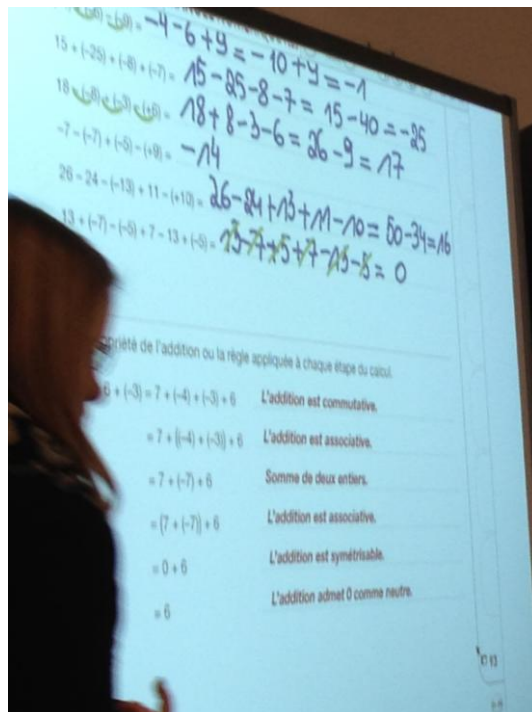 (-6) (-9) = -4-6+9=-10+9=-1
15 + (-25) + (-8) + (-7) = 15-25-8-7=15-40=-25
18 - (-8) + (-3) - (+6) = 18+8-3-6=26-9=17
-7 - (-7) + (-5) - (+9) = -14
26 - 24 - (-13) + 11 - (+10) = 26-24+13+11-10=50-34=16
13 + (-7) - (-5) + 7 - 13 + (-5) = 13-7+5+7-13-5=0
priété de l'addition ou la règle appliquée à chaque étape du calcul.
6 + (-3) = 7 + (-4) + (-3) + 6 L'addition est commutative.
= 7 + [(-4) + (-3)] + 6 L'addition est associative.
= 7 + (-7) + 6 Somme de deux entiers.
= [7 + (-7)] + 6 L'addition est associative.
= 0 + 6 L'addition est symétrisable.
= 6 L'addition admet 0 comme neutre.